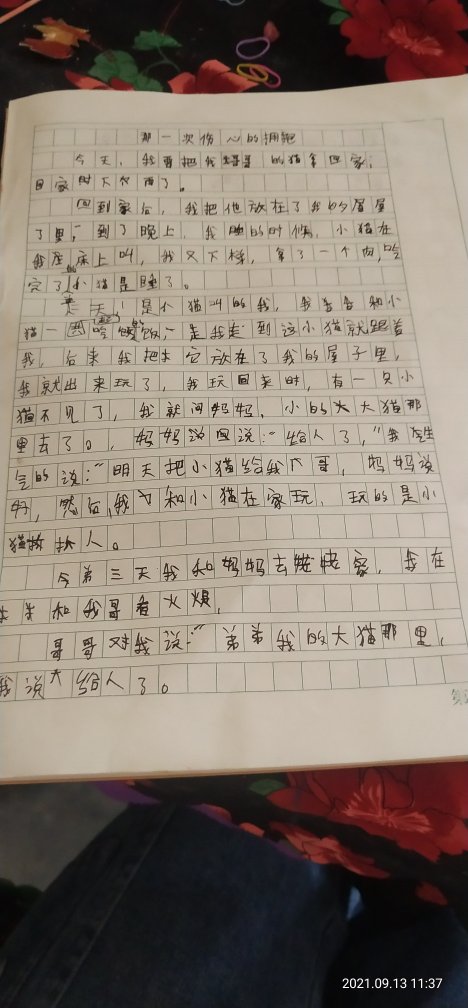 那一次伤心的拥抱
今天，我要把我哥哥的猫拿回家，
回家时下大雨了。
回到家后，我把他放在了我的屋屋
了里，到了晚上，我睡的时候，小猫在
我床上叫，我又下楼，拿了一个肉，吃
完了小猫是睡了。
天，是小猫叫的我，我爸爸和小
猫一吃饭，是我走到这小猫就跟着
我，后来我把它放在了我的屋子里，
我就出来玩了，我玩回来时，有一只小
猫不见了，我就问妈妈，小的大大猫那
里去了。，妈妈说回说：“给人了，”我生
气的说：“明天把小猫给我哥，妈妈说
好，然后，我和小猫在家玩，玩的是小
猫抓人。
今第三天我和妈妈去家，我在
和我哥看火
哥哥对我说：“弟弟我的大猫那里，
我说“给人了。
2021.09.13 11:37